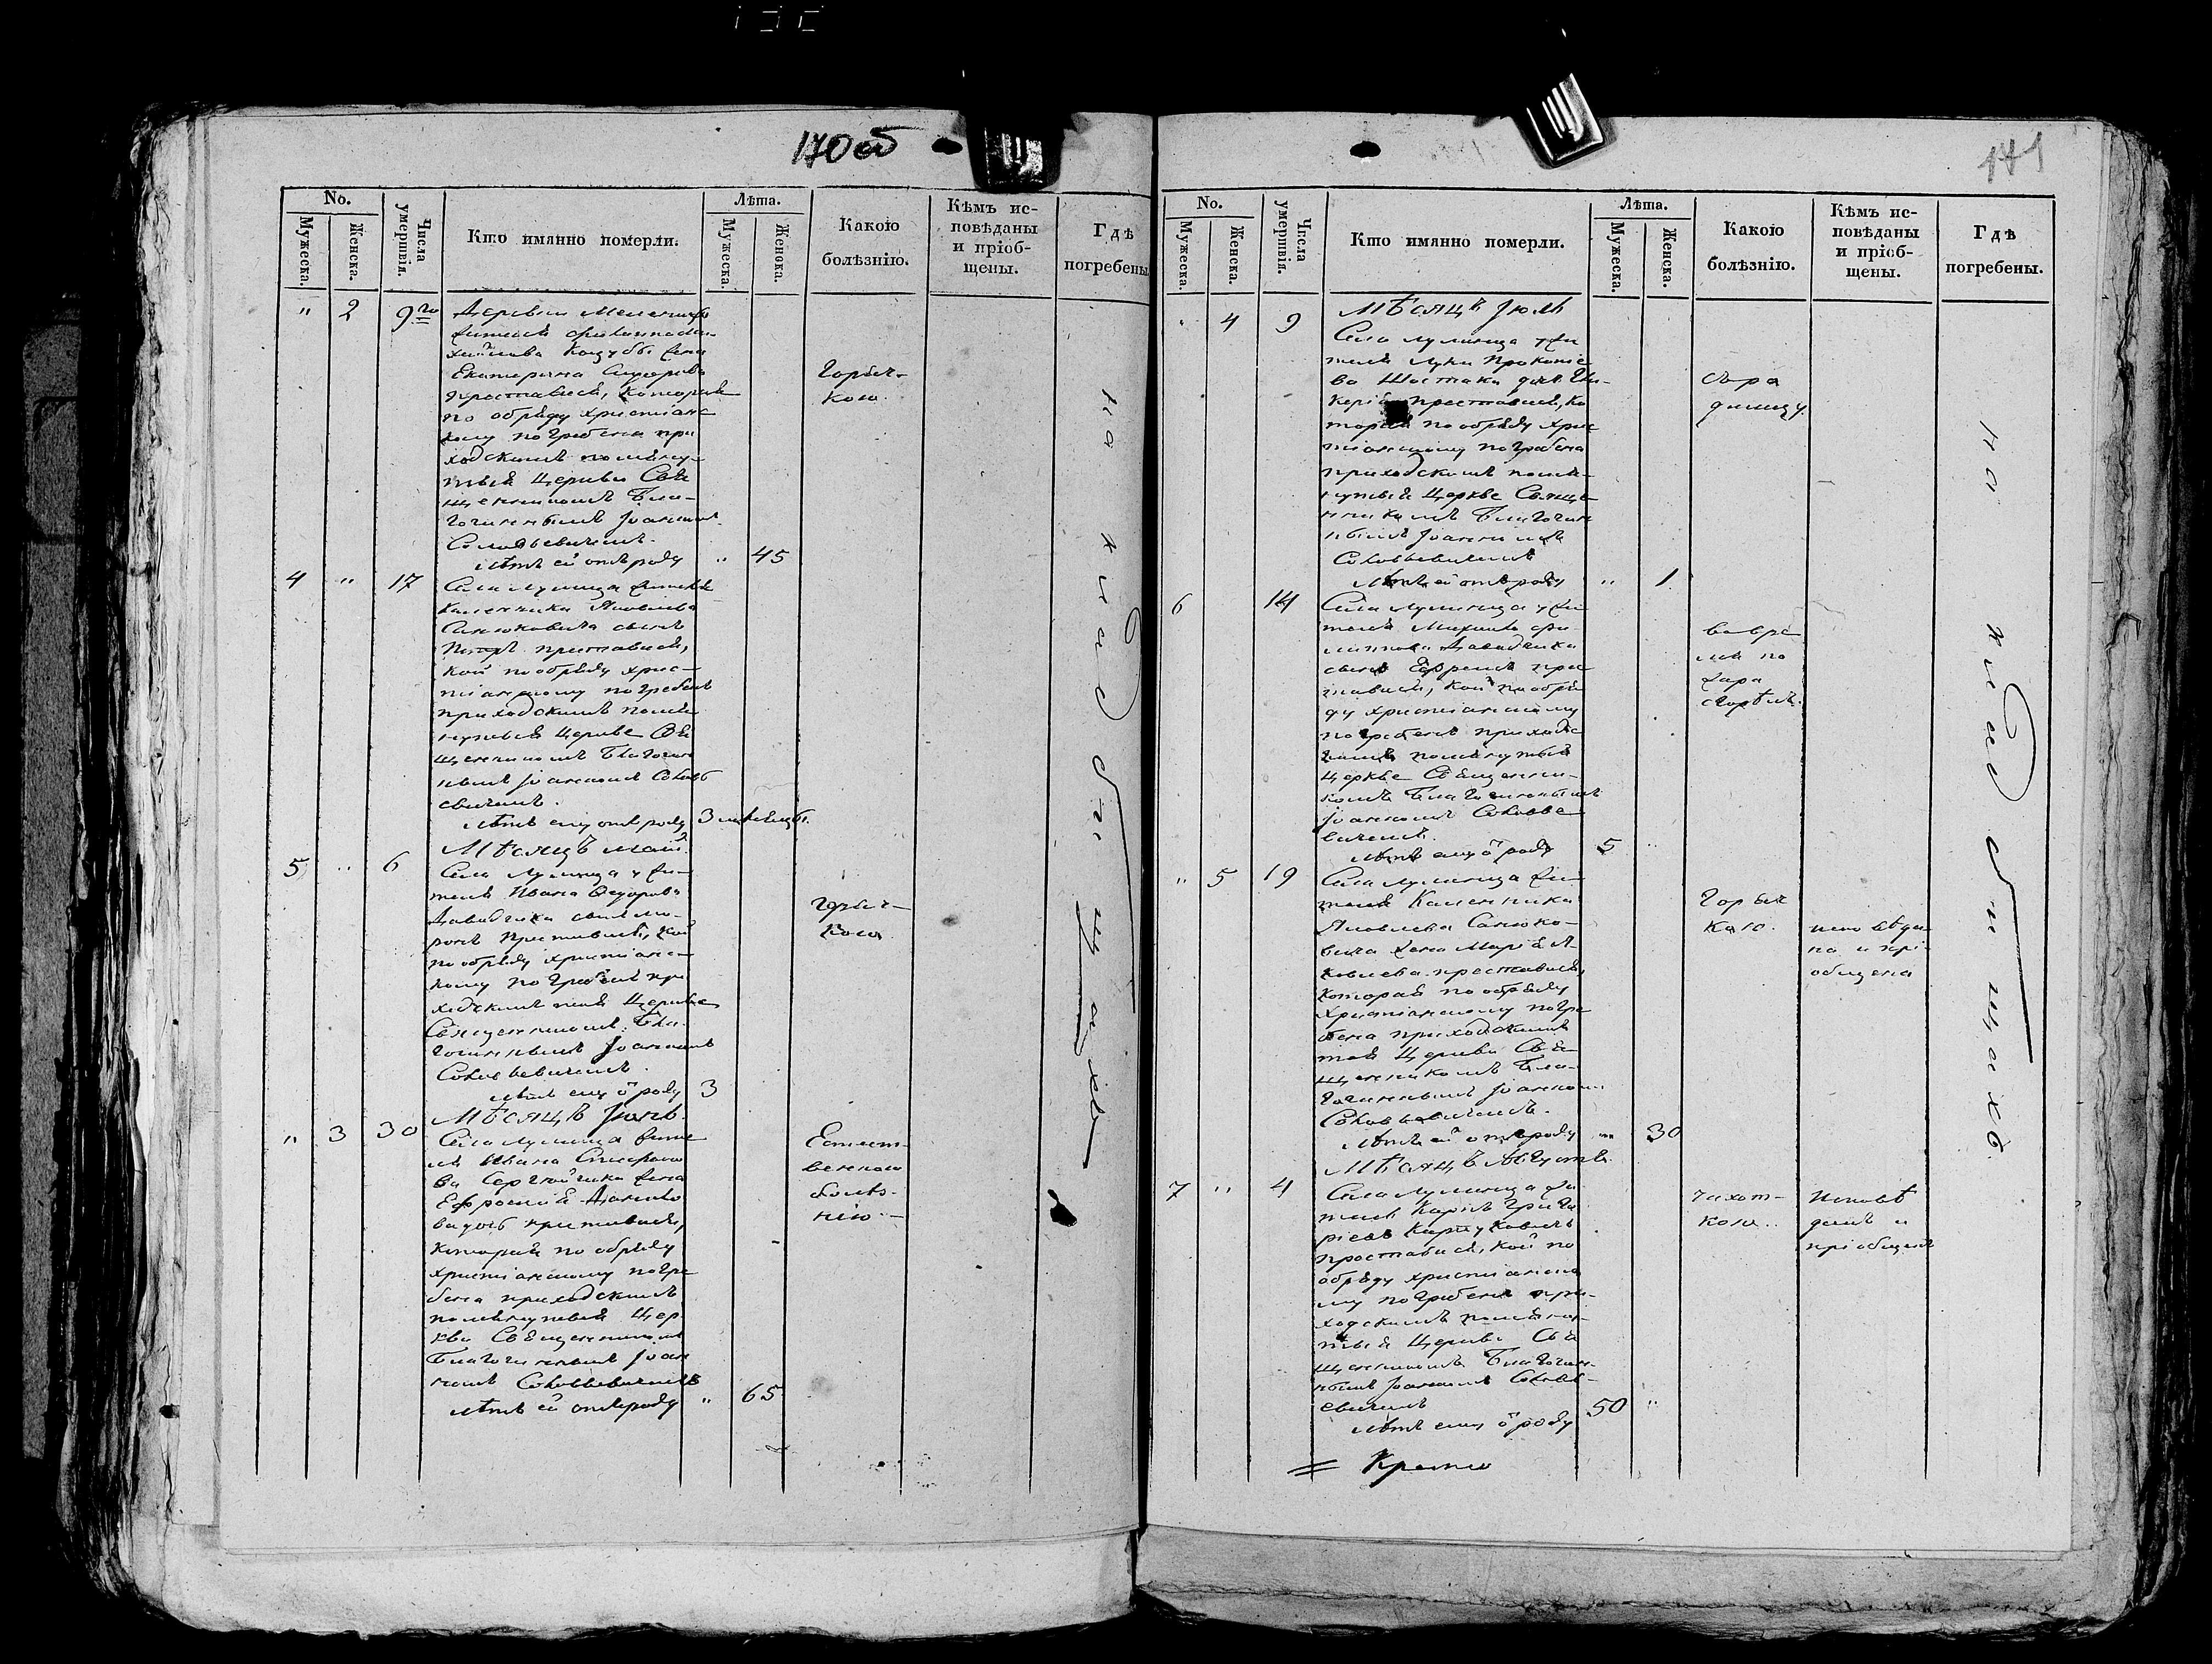 170 об
No.
Мужеска.
Женска.
Числа умершвія.
Кто имянно померли.
Лѣта.
Мужеска.
Женска.
Какою болѣзнію.
Кѣмъ ис-
повѣданы
и пріоб-
щены.
Гдѣ
погребены.
" 2 9го
Деревни
жителя
Кацубы жена
Екатерина
преставися, которая
по обряду христіанс
кому погребена при
ходскимъ помяну-
тыя Церкви Свя
щенникомъ Бла-
гочиннымъ Іоанномъ
Соловьевичемъ.
Лѣтъ ей отъ роду " 45
Горяч-
кою.
4 " 17
Села Лунинца жителя
Калинника Яковлева
Санюковича сынъ
Петръ преставися,
кой по обряду хрис-
тіанскому погребенъ
приходскимъ помя
нутыя Церкве Свя
щенникомъ Благочин
нымъ Іоанномъ Соловь
евичемъ.
Лѣтъ ему отъ роду 3 мѣсяцы.
Мѣсяцъ Май
5 " 6
Села Лунинца жи-
теля Ивана Федорова
Давидчика сынъ Ми-
ронъ преставися, кой
по обряду христіанс-
кому погребенъ при
ходскимъ тоя Церкве
Священникомъ Бла-
гочиннымъ Іоанномъ
Соловьевичемъ.
Лѣтъ ему о роду 3
Горяч-
кою
Мѣсяцъ Іюнь.
" 3 30
Села Лунинца жите
ля Ивана
жена
Ефросинія Данило
ва преставися,
которая по обряду
христіанскому погре
бена приходскимъ
помянутыя Цер
кви Священникомъ
Благочиннымъ Іоан
номъ Соловьевичемъ
Лѣтъ ей отъ роду " 65
Естест-
венною
болѣз-
нію
на кладбищахъ
171
No.
Мужеска.
Женска.
Числа умершвія.
Кто имянно померли.
Лѣта.
Мужеска.
Женска.
Какою болѣзнію.
Кѣмъ ис-
повѣданы
и пріоб-
щены.
Гдѣ
погребены.
Мѣсяцъ Іюль
" 4 9
Села Лунинца жи
теля Луки Прокопіе
ва Шостака дочь Гли-
керія преставися, ко
торая по обряду хрис
тіанскому погребена
приходскимъ помя-
нутыя Церкве Свяще
нникомъ Благочин
нымъ Іоанномъ
Соловьевичемъ
Лѣтъ ей отъ роду " 1.
6 14
Села Лунинца жи
теля Михаила Фи
липпова Давидчика
сынъ Ефремъ прес
тависи, кой по обря
ду христіанскому
погребенъ приходс
кимъ помянутыя
Церкве Священни-
комъ Благочиннымъ
Іоанномъ Соловье
вичемъ.
Лѣтъ ему о роду 5 "
во вре
мя по
жара
сгорѣлъ.
" 5 19
Села Лунинца жи-
теля Калинника
Яковлева Санюко-
вича жена Марія Я-
ковлева преставися,
которая по обряду
Христіанскому погре
бена приходскимъ
тоя Церкви Свя
щенникомъ Бла-
гочиннымъ Іоанном
Соловьевичемъ.
Лѣтъ ей отъ роду " 30
Горяч
кою.
исповѣда
на и прі-
общена
Мѣсяцъ Августъ.
7 " 4
Села Лунинца жи
тель Карпъ Григо
ріевъ
преставися, кой по
обряду христіанско
му погребенъ при-
ходскимъ помяну-
тыя Церкви Свя
щенникомъ Благочин-
нымъ Іоанномъ Соловь-
евичемъ
Лѣтъ ему о роду 50 "
чахот-
кою.
Исповѣ
данъ и
пріобщенъ
на кладбищахъ